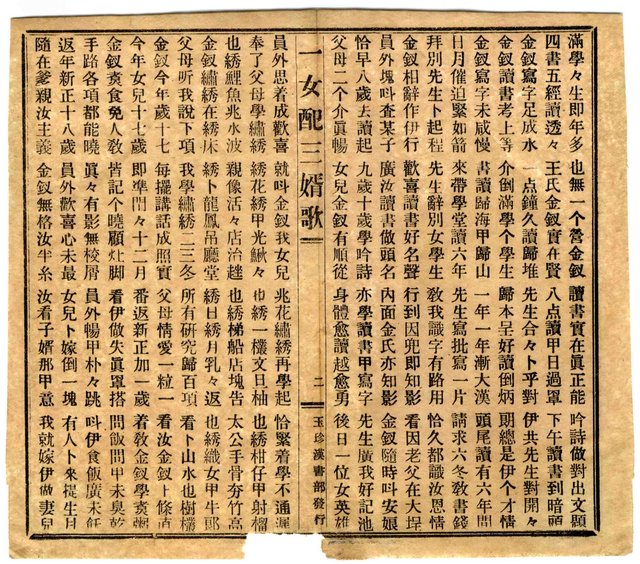 滿學々生即年多 也無一个營金釵 讀書實在眞正能 吟詩做對出文題
四書五經讀透々 王氏金釵實在賢 八点讀甲日過罩 下午讀書到暗頭
金釵寫字足成水 一點鐘久讀歸堆 先生合々卜乎對 伊共先生對開々
金釵讀書考上等 介倒滿學个學生 歸本呈好讀倒炳 朗總是伊个才情
金釵寫字未咸慢 書讀歸海甲歸山 一年一年漸大漢 頭尾讀有六年間
日月催迫緊如箭 來帶學堂讀六年 先生寫批寫一片 請求六冬敎書錢
拜別先生卜起程 先生辭別女學生 敎我識字有路用 恰久都識汝恩情
金釵相辭作伊行 歡喜讀書好名聲 行到因兜即知影 看因老父在大埕
員外塊呌查某子 廣汝讀書做頭名 內面金氏亦知影 金釵隨時呌安娘
恰早八歲去讀起 九歲十歲學吟詩 亦學讀書甲寫字 先生廣我好記池
父母二个介眞暢 女兒金釵有順從 身體愈讀越愈勇 後日一位女英雄
一女配三婿歌 二 玉珍漢書部發行
員外思着成歡喜 就呌金釵我女兒 兆花繡綉再學起 恰緊着學不通遲
奉了父母學繡綉 綉花綉甲光鰍々 巾綉一欉文旦柚 也綉柑仔甲射榴
也綉鯉魚兆水波 親像活々店治趖 也綉梯船店塊告 太公手骨夯竹高
金釵繡綉在綉床 綉卜龍鳳吊廳堂 綉日綉月乳々返 也綉織女甲牛郎
父母听我說下項 我學繡綉二三冬 所有研究歸百項 看卜山水也樹欉
金釵今年歲十七 每擺講話成照實 父母情愛一粒一 看汝金釵卜條直
今年女兒十七歲 即準門々十二月 番返新正加一歲 着敎金釵學煑糜
金釵煑食免人敎 皆記个曉顧灶脚 看伊做失眞罩搭 問飯問甲未臭乾
手路各項都能曉 眞々有影無校屑 員外暢甲朴々跳 呌伊食飯廣未飫
返年新正十八歲 員外歡喜心未最 女兒卜嫁倒一塊 有人卜來提生月
隨在爹親汝主義 金釵無格汝半糸 汝看子婿那甲意 我就嫁伊做妻兒